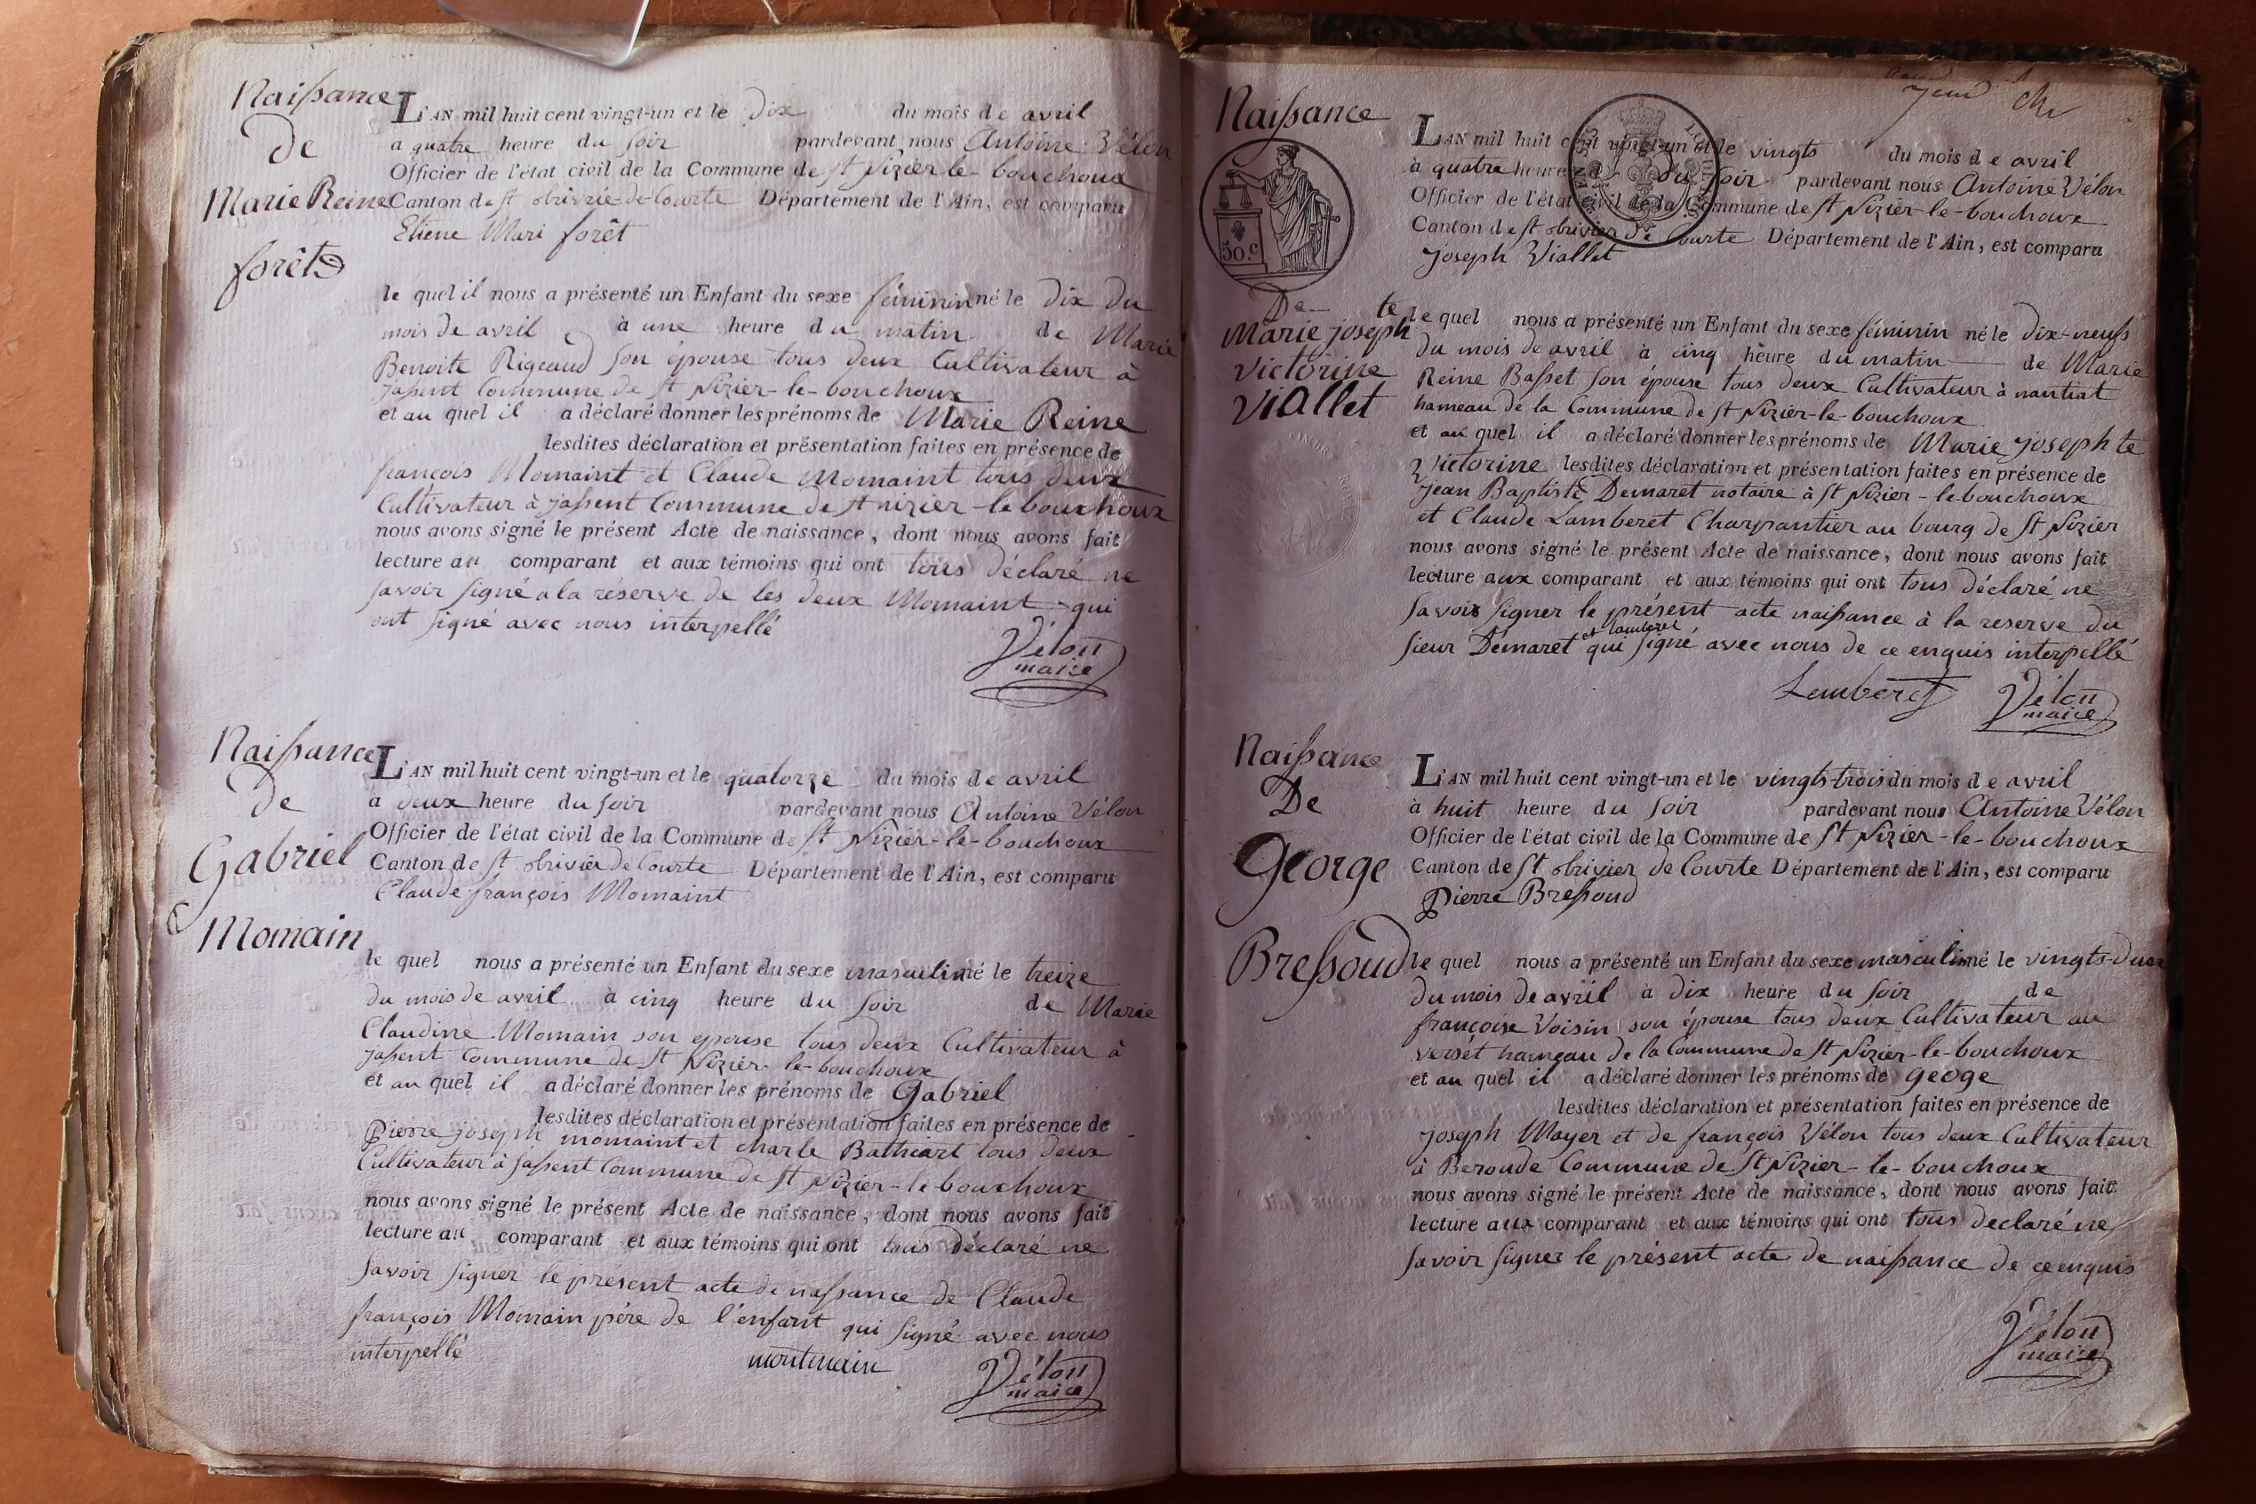 Naissance
de
Marie Reine
forêt
L'AN mil huit cent vingt-un et le dix du mois de avril
a quatre heure du soir pardevant nous Antoine Vélon
Officier de l'état civil de la Commune de st Nizier-le-bouchoux
Canton de st Département de l'Ain, est comparu
Etiene Mari forêt
le quel il nous a présenté un Enfant du sexe féminin né le dix du
mois de avril à une heure du matin de Marie
Benoite Rigeaud son épouse tous deux Cultivateur à
jassent Commune de st Nizier-le-bouchoux
et au quel il a déclaré donner les prénoms de Marie Reine
lesdites déclaration et présentation faites en présence de
françois Momaint et Claude Momaint tous deux
Cultivateur à jassent Commune de st nizier-le bouchoux
nous avons signé le présent Acte de naissance, dont nous avons fait
lecture au comparant et aux témoins qui ont tous déclaré ne
savoir signé a la réserve de les deux Momaint qui
ont signé avec nous interpellé
Vélon
maire
Naissance
de
Gabriel
Momain
L'AN mil huit cent vingt-un et le quatorze du mois de avril
a deux heure du soir pardevant nous Antoine Vélon
Officier de l'état civil de la Commune de st Nizier-le-bouchoux
Canton de st obrivier de Courte Département de l'Ain, est comparu
Claude françois Momaint
le quel nous a présenté un Enfant du sexe masculin né le treize
du mois de avril à cinq heure du soir de Marie
Claudine Momain son epouse tous deux Cultivateur à
jassent Commune de st Nizier-le-bouchoux
et au quel il a déclaré donner les prénoms de Gabriel
lesdites déclaration et présentation faites en présence de
pierre joseph momaint et charle Bathiart tous deux
Cultivateur à jassent Commune de st Nizier-le-bouchoux
nous avons signé le présent Acte de naissance, dont nous avons fait
lecture au comparant et aux témoins qui ont tous déclaré ne
savoir signer le présent acte de naissance de Claude
françois Momain père de l'enfant qui signé avec nous
interpellé
montmain
Vélon
maire
Naissance
De
Marie josephte
victorine
viallet
50.c
L'AN mil huit cent vingt-un et le vingts du mois de avril
à quatre heure du soir pardevant nous Antoine Vélon
Officier de l'état civil de la Commune de st Nizier-le-bouchoux
Canton de st obrivier de Courte Département de l'Ain, est comparu
joseph Viallet
le quel nous a présenté un Enfant du sexe féminin né le dix-neufs
du mois de avril à cinq heure du matin de Marie
Reine Basset son épouse tous deux Cultivateur à nantiat
hameau de la Commune de st Nizier-le-bouchoux
et au quel il a déclaré donner les prénoms de Marie josephte
victorine lesdites déclaration et présentation faites en présence de
jean Baptiste Demaret notaire à st Nizier-le bouchoux
et Claude Lamberet Charpantier au bourg de st Nizier
nous avons signé le présent Acte de naissance, dont nous avons fait
lecture aux comparant et aux témoins qui ont tous déclaré ne
savoir signer le présent acte naissance à la reserve du
sieur Démaret et lamberet qui signé avec nous de ce enquis interpellé
Lamberet
Vélon
maire
Naissance
De
George
Bressoud
L'AN mil huit cent vingt-un et le vingts-trois du mois de avril
à huit heure du soir pardevant nous Antoine Vélon
Officier de l'état civil de la Commune de st Nizier-le-bouchoux
Canton de st obrivier de Courte Département de l'Ain, est comparu
pierre Bressoud
le quel nous a présenté un Enfant du sexe masculin né le vingts-deux
du mois de avril à dix heure du soir de
françoise Voisin son épouse tous deux Cultivateur au
versét hameau de la Commune de st Nizier-le-bouchoux
et au quel il a déclaré donner les prénoms de geoge
lesdites déclaration et présentation faites en présence de
joseph Mayer et de françois Vélon tous deux Cultivateur
à Beroude Commune de St Nizier-le-bouchoux
nous avons signé le présent Acte de naissance, dont nous avons fait
lecture aux comparant et aux témoins qui ont tous declaré ne
savoir signer le présent acte de naissance de ce enquis
Vélon
maire